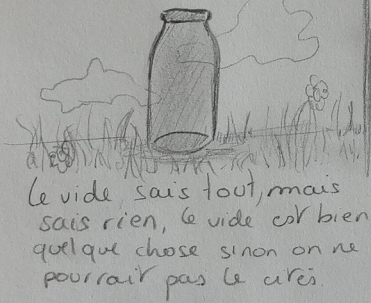 Le vide, sais tout, mais
sais rien, le vide est bien
quelque chose sinon on ne
pourrait pas le crés.